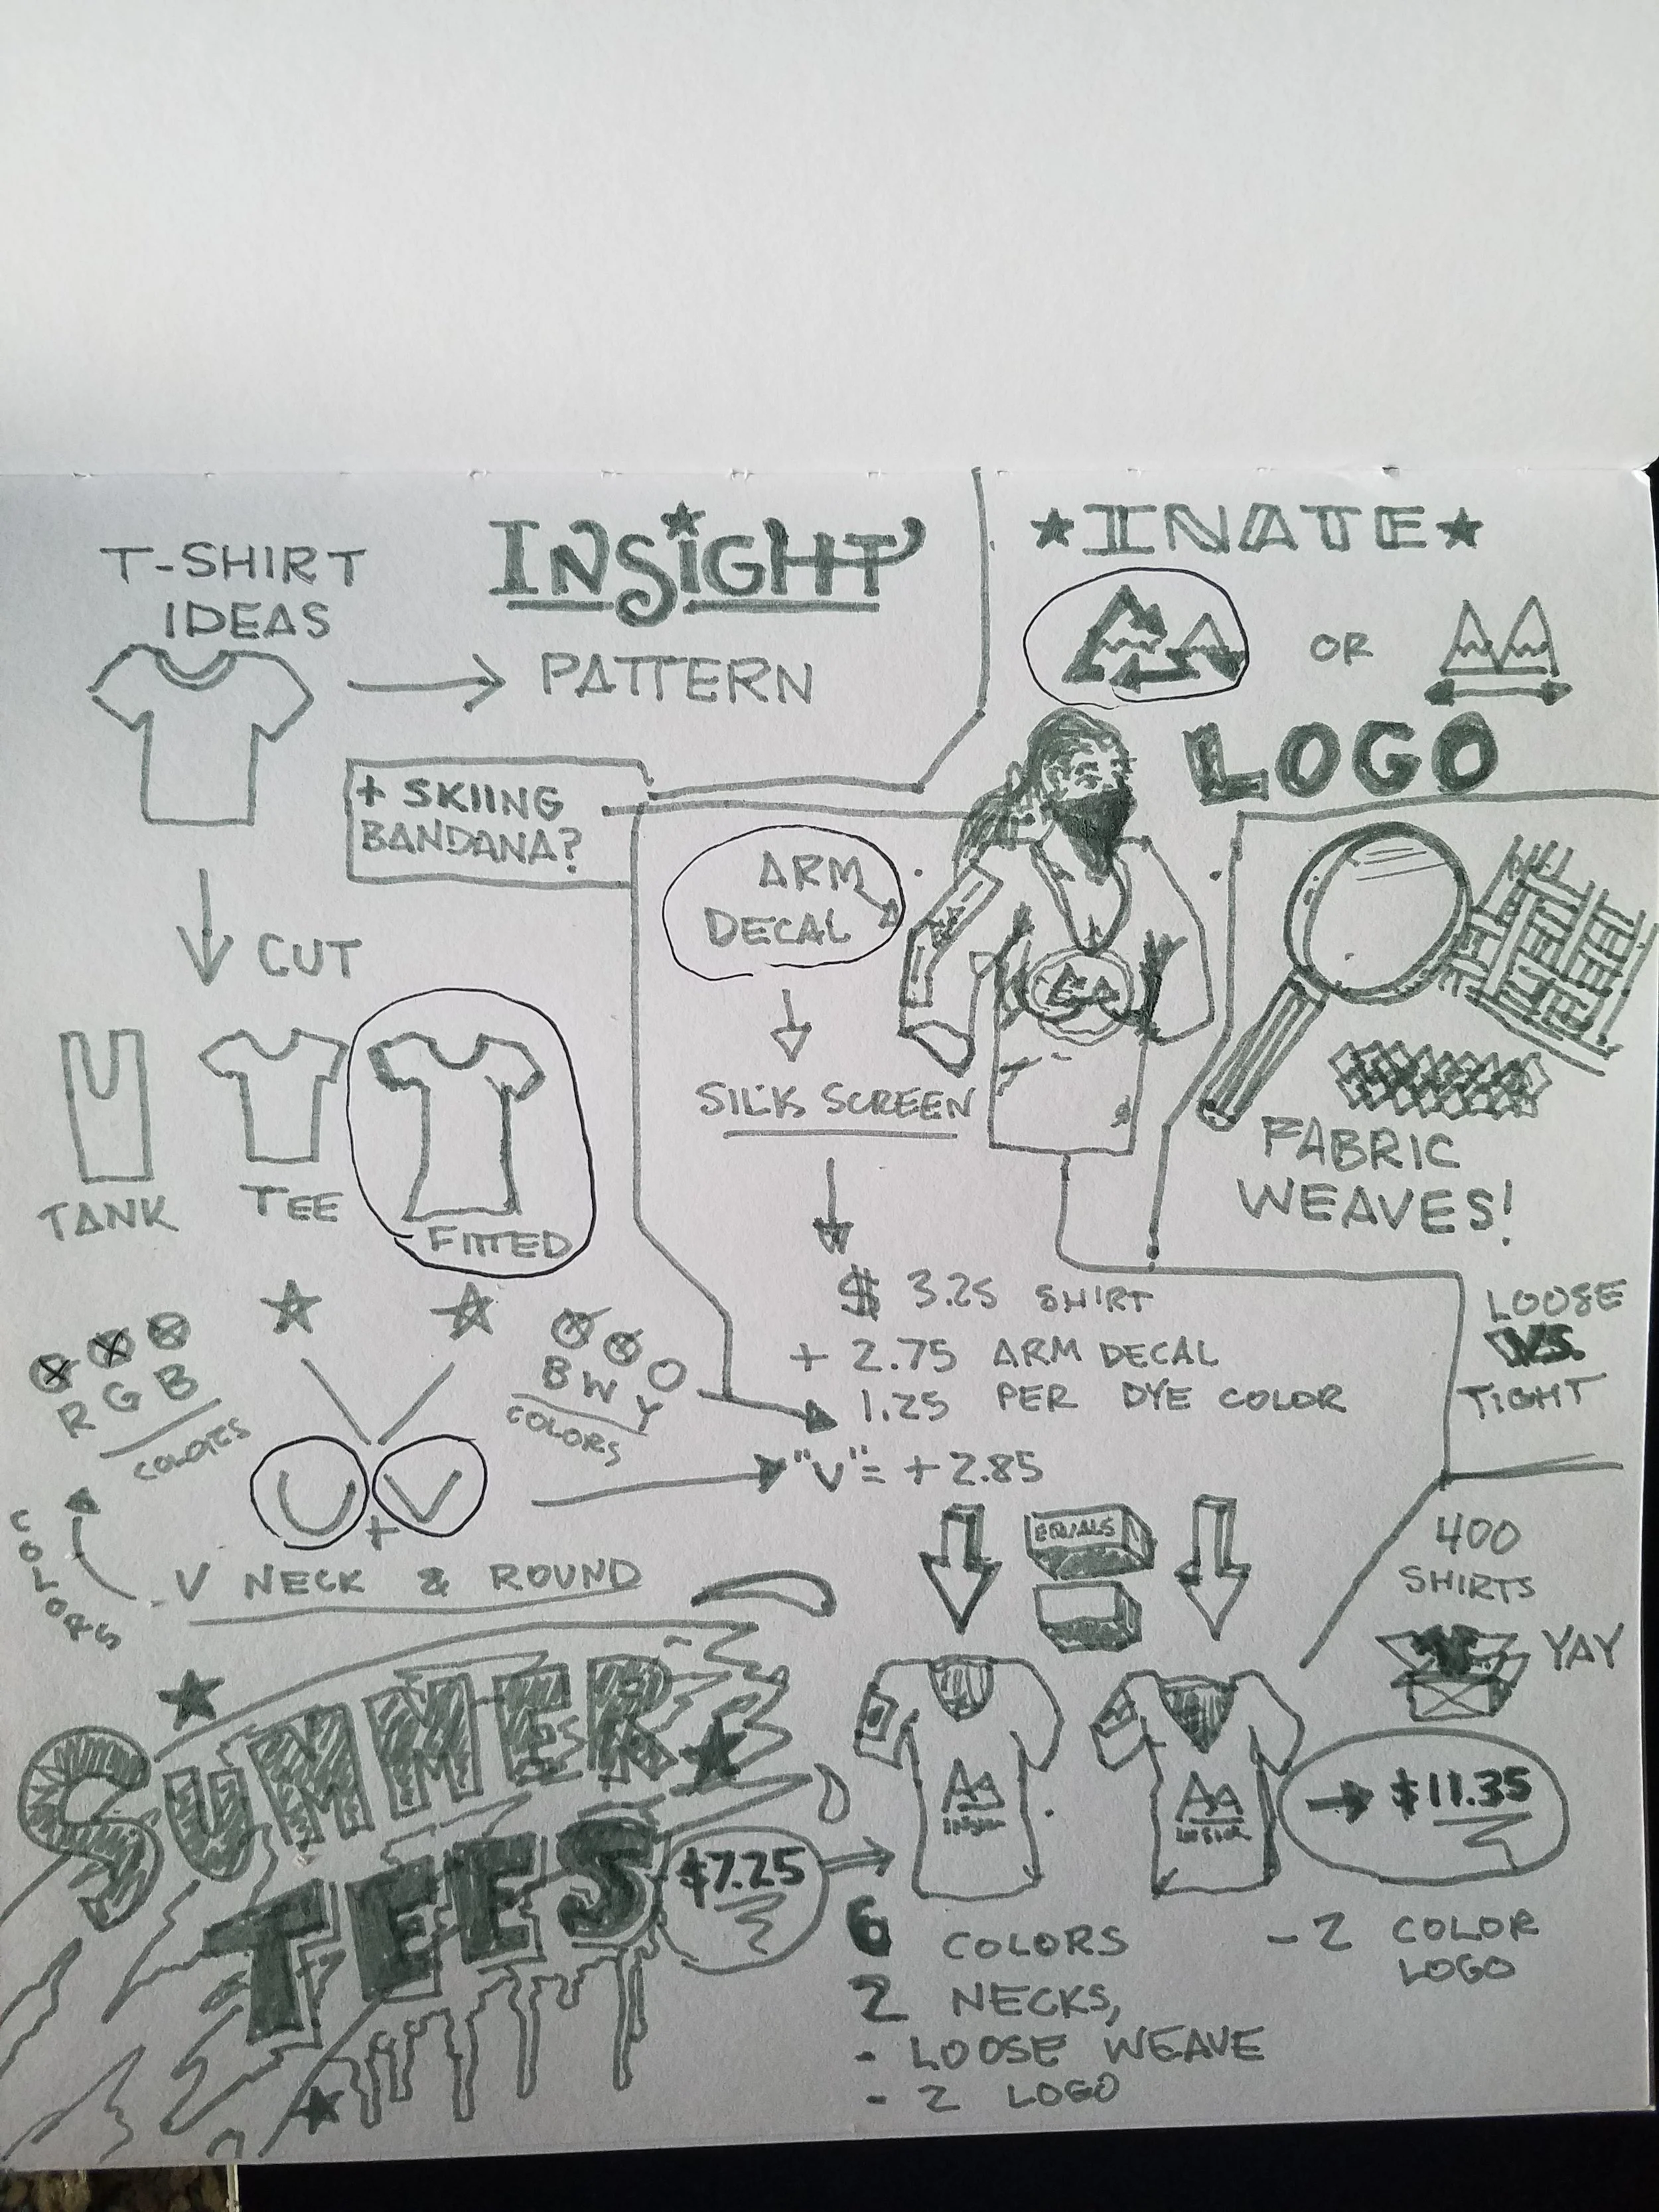 T-SHIRT
IDEAS
INSIGHT
PATTERN
+ SKIING
BANDANA?
CUT
TANK
TEE
FITTED
R G B
COLORS
B W Y
COLORS
U + V
COLORS
- V NECK & ROUND
SUMMER
TEES
$7.25
★INATE★
OR
LOGO
ARM
DECAL
SILK SCREEN
FABRIC
WEAVES!
LOOSE
VS.
TIGHT
$ 3.25 SHIRT
+ 2.75 ARM DECAL
1.25 PER DYE COLOR
"V" = + 2.85
EQUALS
400
SHIRTS
YAY
→ $11.35
6 COLORS
2 NECKS,
- LOOSE WEAVE
- 2 LOGO
- 2 COLOR
LOGO